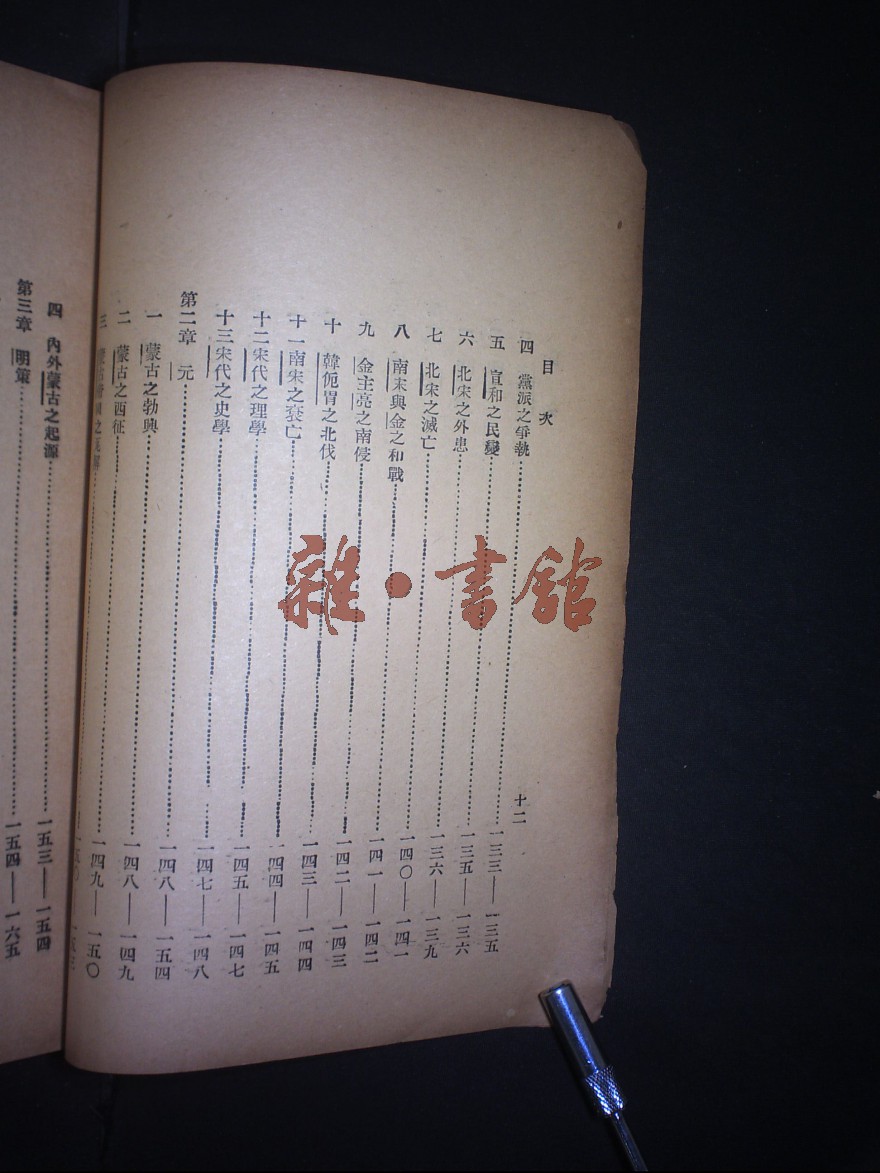 目次
十二
四 黨派之爭執……一三三——一三五
五 宣和之民變……一三五——一三六
六 北宋之外患……一三六——一三九
七 北宋之滅亡……一四〇——一四一
八 南宋與金之和戰……一四一——一四二
九 金主亮之南侵……一四二——一四三
十 韓侂冑之北伐……一四三——一四四
十一 南宋之衰亡……一四四——一四五
十二 宋代之理學……一四五——一四七
十三 宋代之史學……一四七——一四八
第二章 元……一四八——一五四
一 蒙古之勃興……一四八——一四九
二 蒙古之西征……一四九——一五〇
三 蒙古帝國之瓦解……一五〇——一五三
四 內外蒙古之起源……一五三——一五四
第三章 明策……一五四——一六五
雜·書館